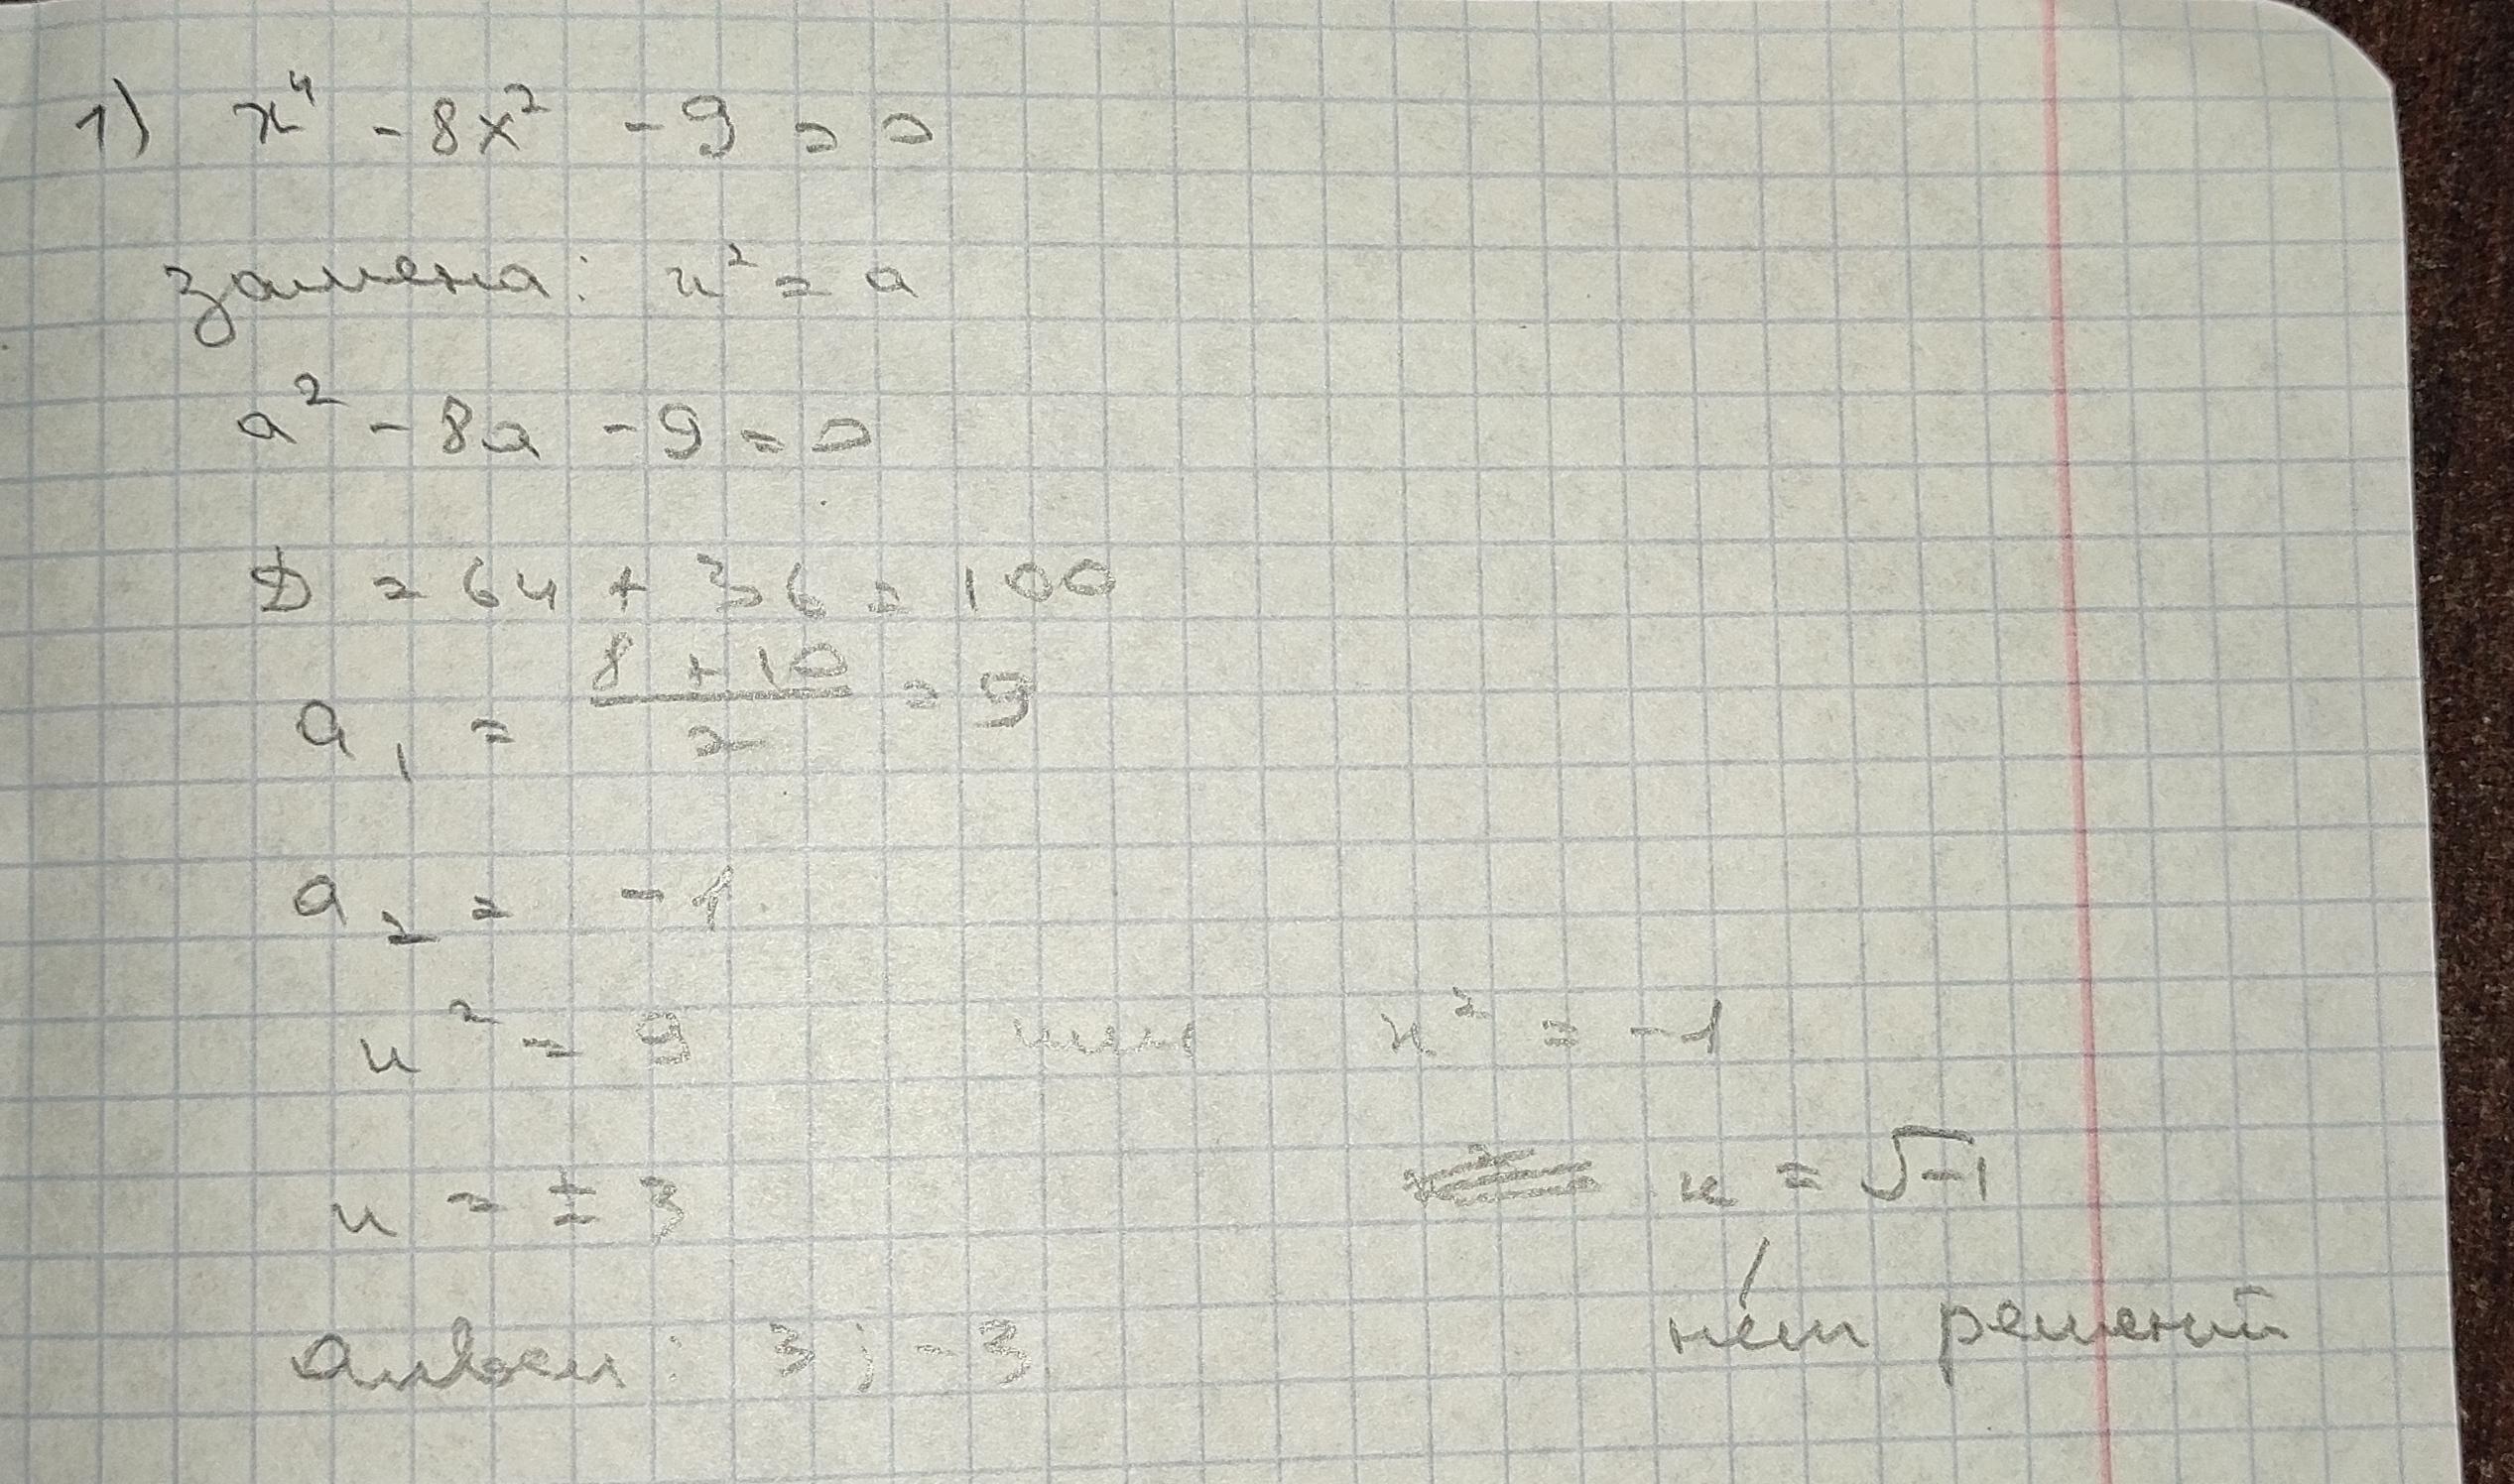 1) x⁴ - 8x² - 9 = 0
замена: x² = a
a² - 8a - 9 = 0
D = 64 + 36 = 100
a₁ = (8 + 10)/2 = 9
a₂ = -1
x² = 9 или x² = -1
x = ± 3 x = √-1
нет решений
Ответ: 3; -3